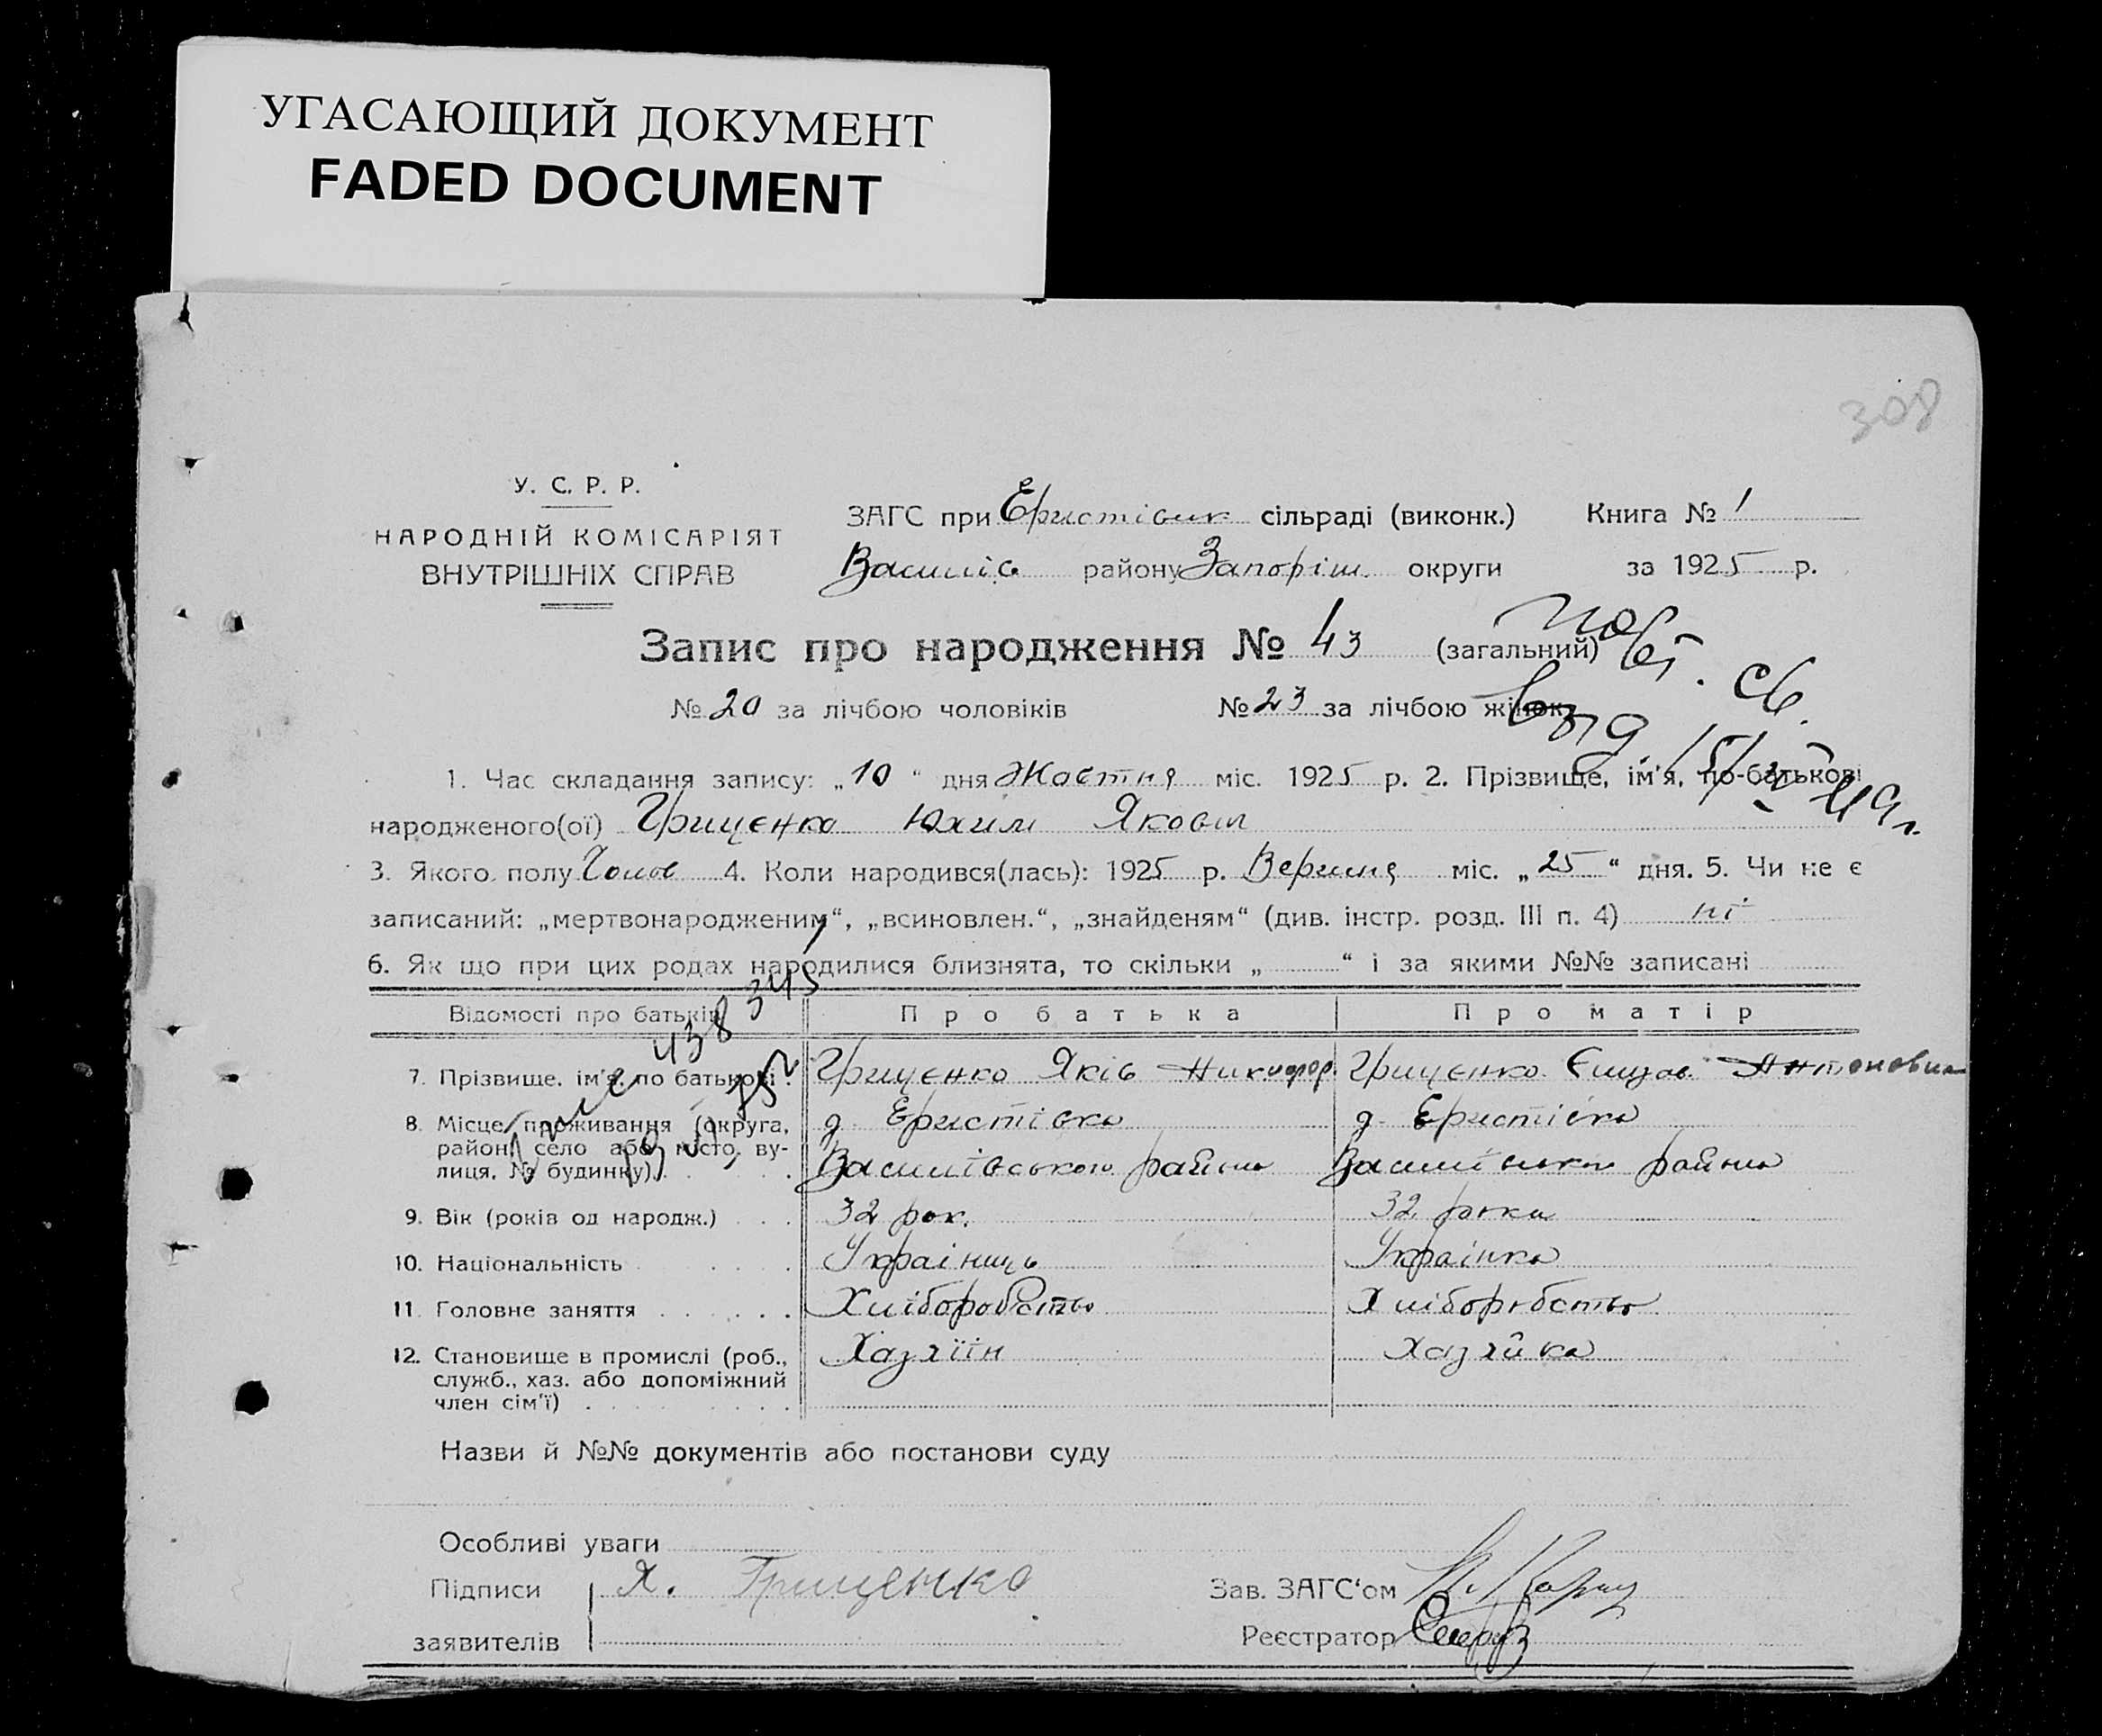 УГАСАЮЩИЙ ДОКУМЕНТ
FADED DOCUMENT
308
У. С. Р. Р.
НАРОДНІЙ КОМІСАРІЯТ
ВНУТРІШНІХ СПРАВ
ЗАГС при Еристівск сільраді (виконк.) Книга № 1
Василів району Запоріш. округи за 1925 р.
Запис про народження № 43 (загальний)
№ 20 за лічбою чоловіків № 23 за лічбою жінок
1. Час складання запису: „10“ дня Жовтня міс. 1925 р. 2. Прізвище, ім'я, по-батькові
народженого(ої) Гриценко Юхим Яковл
3. Якого полу Чолов 4. Коли народився(лась): 1925 р. Вересня міс. „25“ дня. 5. Чи не є
записаний: „мертвонародженим“, „всиновлен.“, „знайденям“ (див. інстр. розд. III п. 4) ні
6. Як що при цих родах народилися близнята, то скільки „ “ і за якими №№ записані
Відомості про батьків Про батька Про матір
7. Прізвище, ім'я, по батькові. Гриценко Яків Никифор. Гриценко Антоновна
8. Місце проживання (округа, д. Еристівка д. Еристівка
район, село або місто, ву-
лиця, № будинку). Василівського району Василівського району
9. Вік (років од народж.) 32 рок. 32 роки
10. Національність Украінець Украінка
11. Головне заняття Хліборобство Хліборобство
12. Становище в промислі (роб., Хазяїін Хазяйка
служб., хаз. або допоміжний
член сім'ї)
Назви й №№ документів або постанови суду
Особливі уваги
Підписи Я. Гриценко Зав. ЗАГС'ом
заявителів Реєстратор